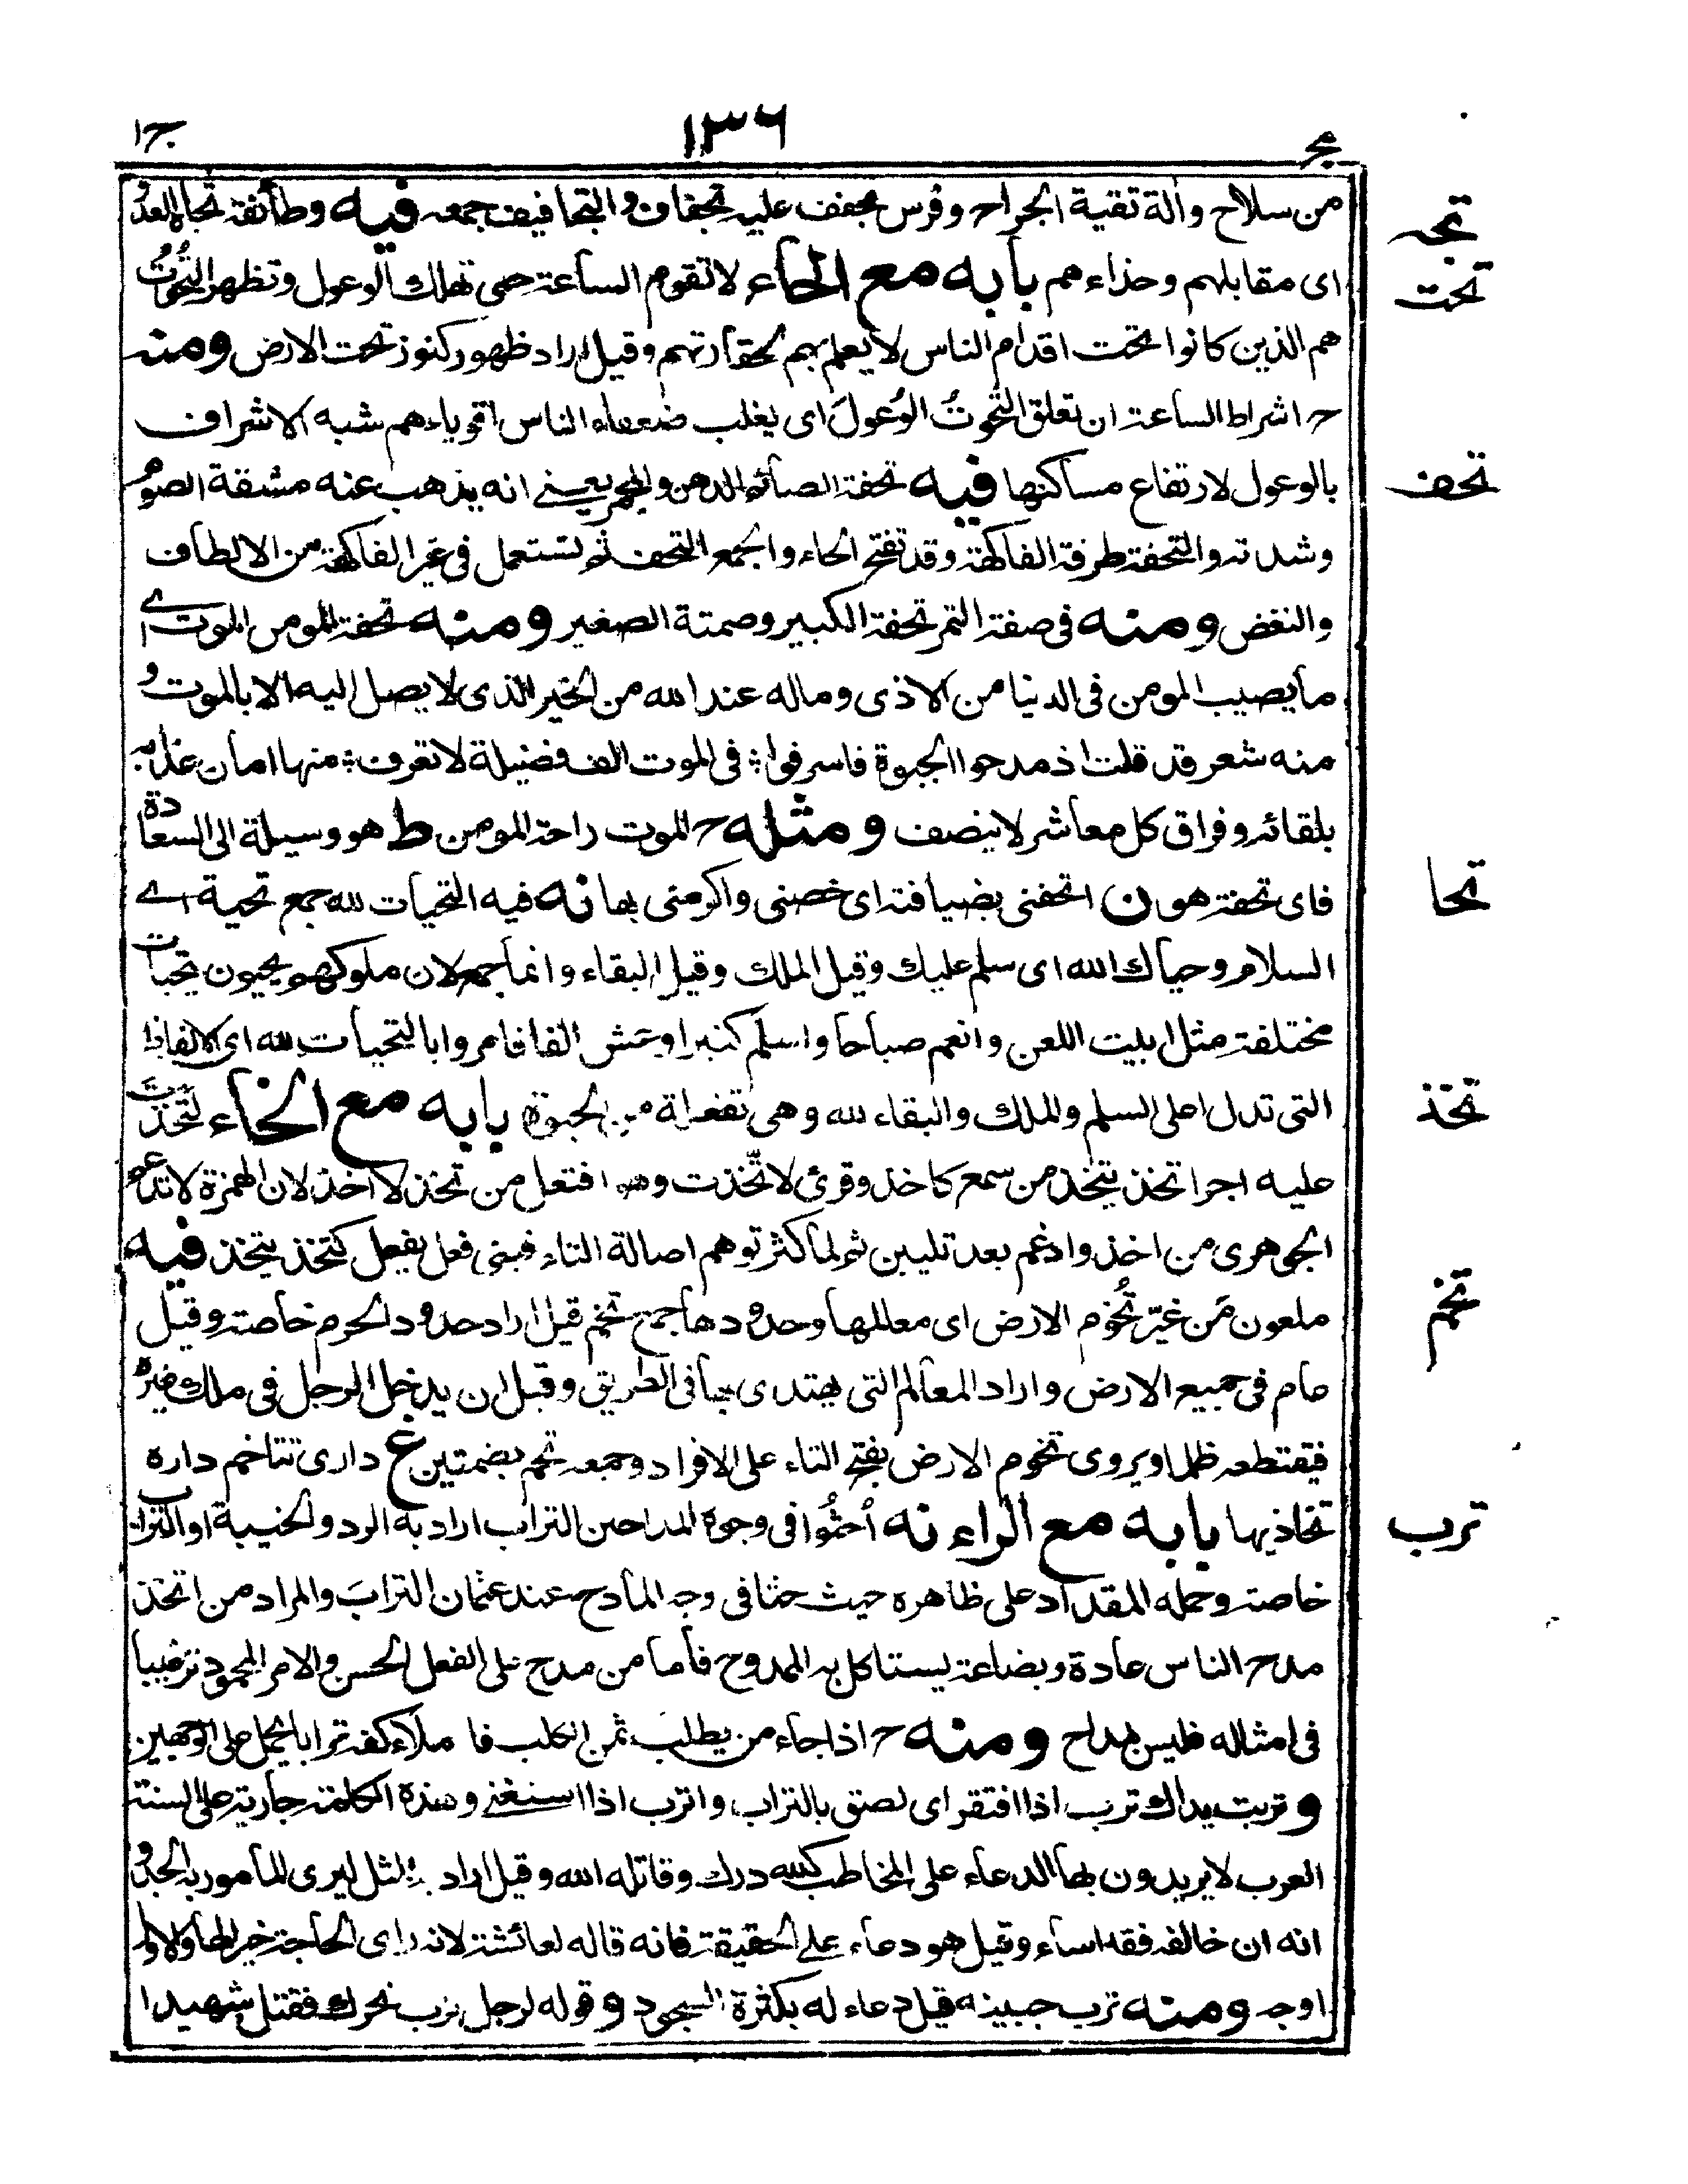 ج١
١٣٦
مج
تجه
من سلاح والة تقية الجراح وفرس مجفف عليه تجفاف والتجافيف جمعه فيه وطائفة تجاه العدو
تحت
اى مقابلهم وحذاءهم بابه مع الحاء لا تقوم الساعة حتى تهلك الوعول وتظهر التُّحُوتُ
هم الذين كانوا تحت اقدام الناس لا يعلم بهم لحقارتهم وقيل اراد ظهور كنوز تحت الارض ومنه
ح اشراط الساعة ان تعلق التُّحوتُ الوُعولَ اى يغلب ضعفاء الناس اقوياءهم شبه الاشراف
تحف
بالوعول لارتفاع مساكنها فيه تحفة الصائم الدهن والمجمر يعنے انه يذهب عنه مشقة الصوم
وشدته والتحفة طرفة الفاكهة وقد تفتح الحاء والجمع التحف ثم تستعمل فى غير الفاكهة من الالطاف
والنغض ومنه فى صفة التمر تحفة الكبير وصمتة الصغير ومنه تحفة المومن الموت اے
ما يصيب المومن فى الدنيا من الاذى وماله عند الله من الخير الذى لا يصل اليه الا بالموت و
منه شعر قد قلت اذ مدحوا الحيوة فاسرفوا ؛ فى الموت الف فضيلة لا تعرف ؛ منها امان عذابه
بلقائه وفراق كل معاشر لا ينصف ومثله ح الموت راحة المومن ط هو وسيلة الى السعادة
تحا
فاى تحفة هو ن اتحفنى بضيافة اى خصنى واكرمنى بها نه فيه التحيات لله جمع تحية اے
السلام وحياك الله اى سلم عليك وقيل الملك وقيل البقاء وانما جمع لان ملوكهم يحيون بتحيات
مختلفة مثل ابيت اللعن وانعم صباحا واسلم كثيرا وعش الفا فامروا بالتحيات لله اى الالفاظ
تخذ
التى تدل على السلم والملك والبقاء لله وهى تفعلة من الحيوة بابه مع الخاء لَتَّخَذْتَ
عليه اجرا تخذ يتخذ من سمع كاخذ وقرئ لاتّخذت وهو افتعل من تخذ لا اخذ لان الهمزة لا تدغم
الجوهرى من اخذ وادغم بعد تليين ثم لما كثر توهم اصالة التاء فبنى فعل يفعل كتخذ يتخذ فيه
تخم
ملعون مَن غيّر تُخوم الارض اى معالمها وحدودها جمع تخم قيل اراد حدود الحرم خاصة وقيل
عام فى جميع الارض واراد المعالم التى يهتدى بها فى الطريق وقيل ان يدخل الرجل فى ملك غيره
فيقتطعه ظلما ويروى تخوم الارض بفتح التاء على الافراد وجمعه تخم بضمتين غ دارى تتاخم داره
ترب
تحاذيها بابه مع الراء نه اُحثُوا فى وجوه المداحين التراب اراد به الرد والخيبة او التراب
خاصة وحمله المقداد على ظاهره حيث حثا فى وجه المادح عند عثمان الترابَ والمراد من اتخذ
مدح الناس عادة وبضاعة يستاكل به الممدوح فاما من مدح على الفعل الحسن والامر المحمود ترغيبا
فى امثاله فليس بمداح ومنه ح اذا جاء من يطلب ثمن الكلب فاملاء كفه ترابا يحمل على الوجهين
و تربت يداك ترب اذا افتقر اى لصق بالتراب واترب اذا استغنے وهذه الكلمة جارية على السنة
العرب لا يريدون بها الدعاء على المخاطب كلله درك وقاتله الله وقيل اراد به المثل ليرى المامور به الجد و
انه ان خالفه فقد اساء وقيل هو دعاء علے الحقيقة فانه قاله لعائشة لانه راى الحاجة خيرا لها والاول
اوجه ومنه ترب جبينه قيل دعاء له بكثرة السجود و قوله لرجل ترب نحرك فقتل شهيدا